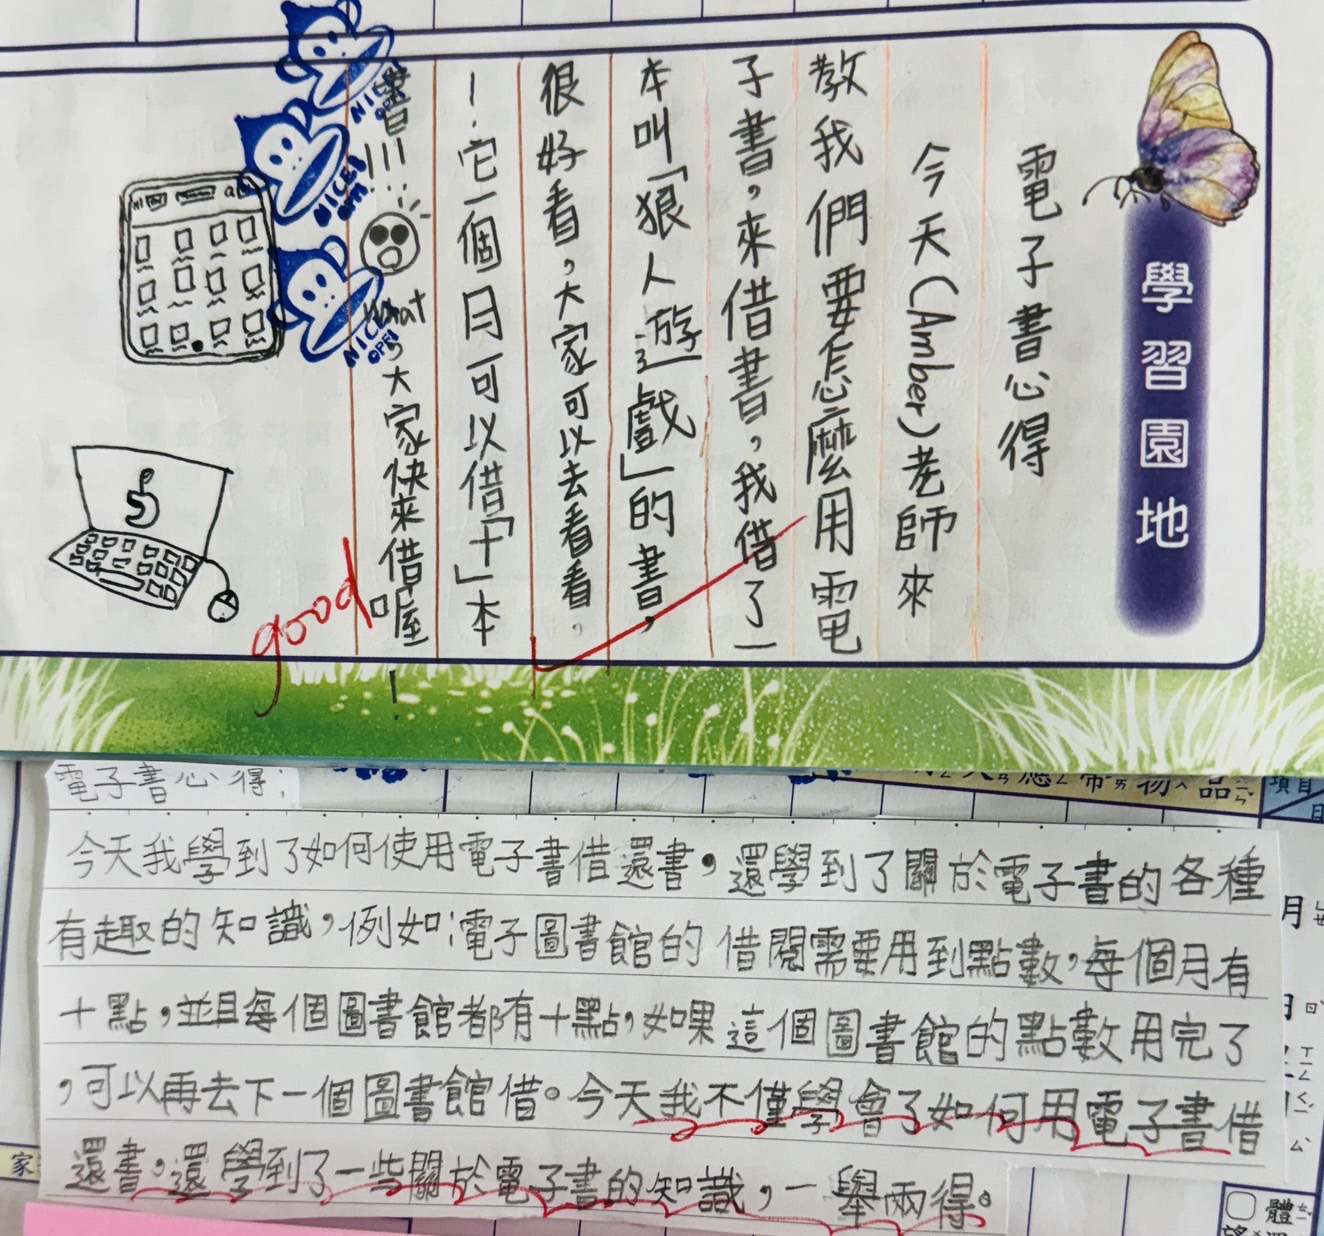 學習園地
電子書心得
今天(Amber)老師來
教我們要怎麼用電
子書，來借書，我借了一
本叫「狼人遊戲」的書，
很好看，大家可以去看看。
！它一個月可以借「十」本
書!!!
What
，大家快來借喔！
NICE
NICE!
NICE
good
電子書心得：
今天我學到了如何使用電子書借還書，還學到了關於電子書的各種
有趣的知識，例如：電子圖書館的借閱需要用到點數，每個月有
十點，並且每個圖書館都有十點，如果這個圖書館的點數用完了
，可以再去下一個圖書館借。今天我不僅學會了如何用電子書借
還書，還學到了一些關於電子書的知識，一舉兩得。
應帶物品
項目
月
家
體